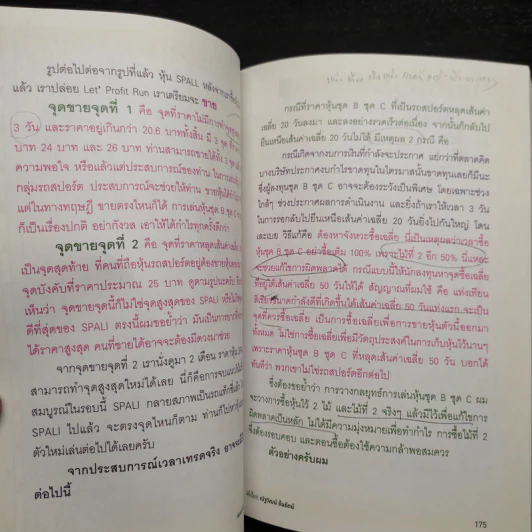 รูปต่อไปต่อจากรูปที่แล้ว หุ้น SPALI หลังจากเราซื้อ
แล้ว เราปล่อย Let' Profit Run เราเตรียมจะ ขาย
จุดขายจุดที่ 1 คือ จุดที่ราคาไม่มีการทำ
3 วัน และราคาอยู่เกินกว่า 20.6 บาททั้งสิ้น มี 3 จุด
บาท 24 บาท และ 26 บาท ท่านสามารถขายได้ทั้ง 3 จุด
ความพอใจ หรือแล้วแต่ประสบการณ์ของท่าน ในการเล่น
กลุ่มรถสปอร์ต ประสบการณ์จะช่วยให้ท่าน ขายหุ้นได้
แต่ในทางทฤษฎี ขายตรงไหนก็ได้ การเล่นหุ้นชุด B ชุด C
ก็เป็นเรื่องปกติ อย่ากังวล เอาให้ได้กำไรทุกครั้งดีกว่า
จุดขายจุดที่ 2 คือ จุดที่ราคาหลุดเส้นค่า
เป็นจุดสุดท้าย ที่คนที่ถือหุ้นรถสปอร์ตอยู่ต้องขายหุ้น
จุดบังคับที่ราคาประมาณ 25 บาท ดูตามรูปนะครับ
เห็นว่า จุดขายจุดนี้ก็ไม่ใช่จุดสูงสุดของ SPALI หรือไม่
ดีที่สุดของ SPALI ตรงนี้ผมขอย้ำว่า มันเป็นการยาก
ได้ราคาสูงสุด คนที่ขายได้อาจจะต้องมีดวงมาช่วย
จากจุดขายจุดที่ 2 เรานั่งดูมา 2 เดือน ราคาหุ้น
สามารถทำจุดสูงสุดใหม่ได้เลย นี่ก็คือการจบ
สมบูรณ์ในรอบนี้ SPALI กลายสภาพเป็นรถแท็กซี่แล้ว
SPALI ไปแล้ว จะตรงจุดไหนก็ตาม ท่านก็ไปหาหุ้น
ตัวใหม่เล่นต่อไปได้เลยครับ
จากประสบการณ์เวลาเทรดจริง อาจจะ
ต่อไปนี้
กรณีที่ราคาหุ้นชุด B ชุด C ที่เป็นรถสปอร์ตหลุดเส้นค่า
เฉลี่ย 20 วันลงมา และลงอย่างรวดเร็วต่อเนื่อง จากนั้นก็กลับไป
ยืนเหนือเส้นค่าเฉลี่ย 20 วันไม่ได้ มีเหตุผล 2 กรณี คือ
กรณีเกิดจากงบการเงินที่กำลังจะประกาศ แย่กว่าที่ตลาดคิด
บางบริษัทประกาศงบกำไรขาดทุนในไตรมาสนั้นขาดทุนเลยก็มีนะ
ซึ่งผู้ลงทุนชุด B ชุด C อาจจะต้องระวังเป็นพิเศษ โดยเฉพาะช่วง
ใกล้ๆ ช่วงประกาศผลการดำเนินงาน และยิ่งถ้าเราให้เวลา 3 วัน
ในการรอกลับไปยืนเหนือเส้นค่าเฉลี่ย 20 วันยิ่งไปกันใหญ่ โดน
เละเยะ วิธีแก้คือ ต้องหาจังหวะซื้อเฉลี่ย นี่เป็นเหตุผลว่าเวลาซื้อ
หุ้นชุด B ชุด C อย่าซื้อเต็ม 100% เพราะไม้ที่ 2 อีก 50% นี่แหละ
จะช่วยแก้ไขการผิดพลาดได้ กรณีแบบนี้ให้นักลงทุนหาจุดซื้อเฉลี่ย
ที่อยู่ใต้เส้นค่าเฉลี่ย 50 วันให้ได้ สัญญาณที่ผมใช้ คือ แท่งเทียน
สีเขียวขนาดกำลังดีที่เกิดขึ้นใต้เส้นค่าเฉลี่ย 50 วันแท่งแรก จะเป็น
จุดที่ควรซื้อเฉลี่ย เป็นการซื้อเฉลี่ยเพื่อการขายหุ้นตัวนี้ออกมา
ทั้งหมด ไม่ใช่การซื้อเฉลี่ยเพื่อมีวัตถุประสงค์ในการเก็บหุ้นไว้นานๆ
เพราะราคาหุ้นชุด B ชุด C ที่หลุดเส้นค่าเฉลี่ย 50 วัน บอกได้
ทันทีว่า พวกเขาไม่ใช่รถสปอร์ตอีกต่อไป
ซึ่งต้องขอย้ำว่า การวางกลยุทธ์การเล่นหุ้นชุด B ชุด C ผม
จะวางการซื้อหุ้นไว้ 2 ไม้ และไม้ที่ 2 จริงๆ แล้วมีไว้เพื่อแก้ไขการ
ผิดพลาดเป็นหลัก ไม่ได้มีความมุ่งหมายเพื่อทำกำไร การซื้อไม้ที่ 2
จึงต้องรอบคอบ และตอนซื้อต้องใช้ความกล้าพอสมควร
ตัวอย่างครับผม
175